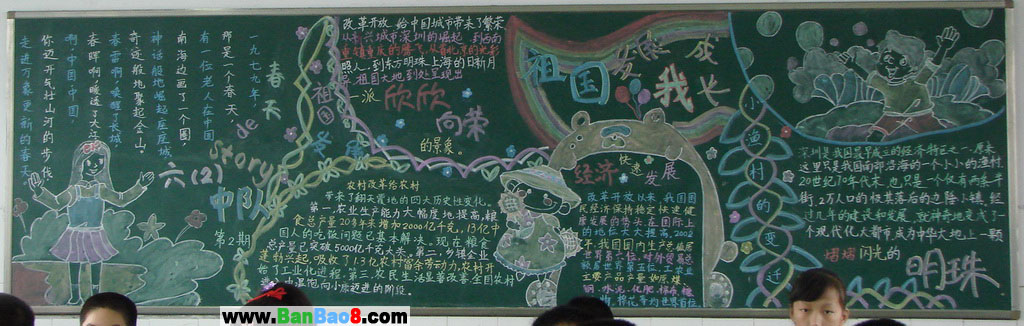 一九七九年，
那是一个春天，
有一位老人在中国
南海边画了一个圈，
神话般地崛起座座城
奇迹般地聚起金山。
春雷啊唤醒了长城
春晖啊暖透了大江
啊，中国中国
你迈开气壮山河的步伐
走进万象更新的春天。
春天
de
Story
六(2)
中队
第2期
改革开放，给中国城市带来了繁荣
从新兴城市深圳的崛起，到西南
照人，到东方明珠上海的日新月
祖国大地到处呈现出
一派
欣欣
向荣
的景象。
祖国
农村改革给农村
带来了翻天覆地的四大历史性变化。
第一，农业生产能力大幅度地提高，粮
食总产量20年来增加2000亿千克，13亿中
国人的吃饭问题已基本解决。现在粮食
总产量已突破5000亿千克大关。第二，乡镇企业
蓬勃兴起，吸收了1.3亿农村富余劳动力，农村开
始了工业化进程。第三，农民生活显著改善，全国农村
由温饱向小康迈进的阶段。
祖国
发展
我
成长
经济
快速
发展
改革开放以来，我国国
民经济保持稳定快速健
康发展，在世界
的地位大大提高。2002
年，我国国内生产总值居
世界第六位，对外贸易总
额居世界第五位，工农业
主要产品产量如原煤、
钢、水泥、化肥、棉布、粮
棉花等均世界首位
小渔村的变迁
深圳是我国最早成立的经济特区之一。原来
这里只是我国南部沿海的一个小小的渔村
20世纪70年代末，也只是一个仅有两条半
街，2万人口的极其落后的边陲小镇，经
过几年的建设和发展，就神奇地变成了一
个现代化大都市，成为中华大地上一颗
熠熠闪光的
明珠
www.BanBao8.com